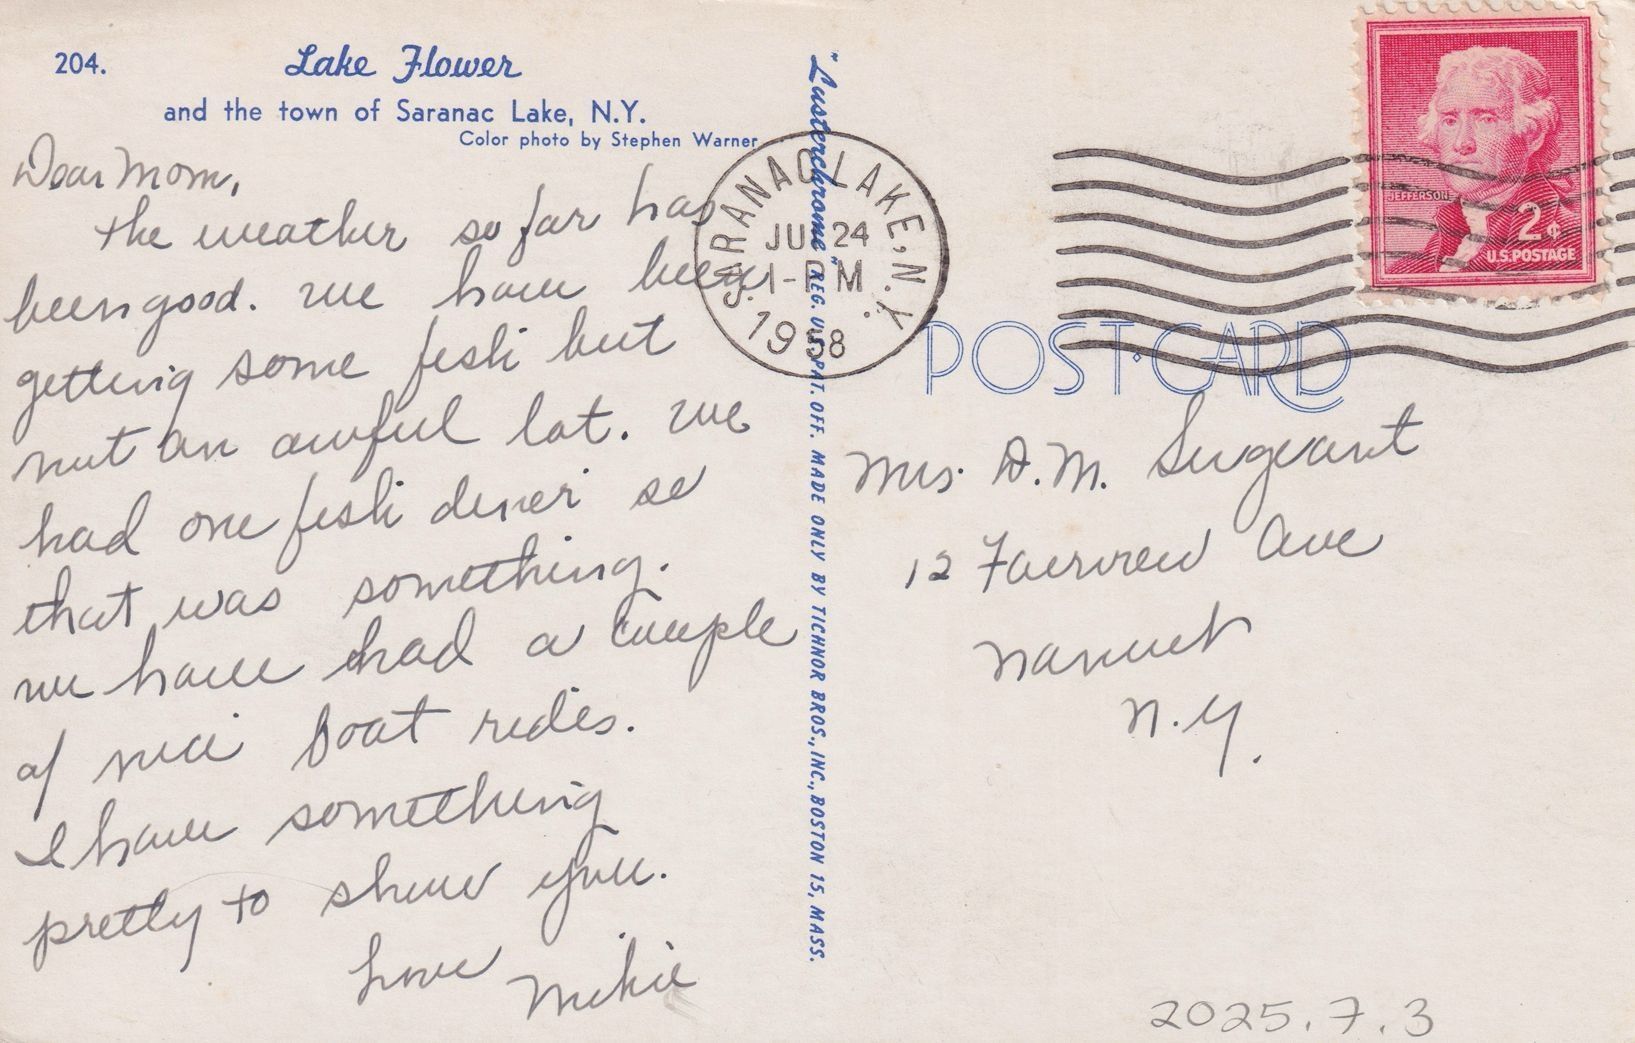 204. Lake Flower
and the town of Saranac Lake, N.Y.
Color photo by Stephen Warner
Dear Mom,
the weather so far has
been good. We have been
getting some fish but
not an awful lot. We
had one fish diner so
that was something.
We have had a couple
of nice boat rides.
I have something
pretty to show you.
Love Mikie
"Lusterchrome" REG. U.S. PAT. OFF. MADE ONLY BY TICHNOR BROS., INC., BOSTON 15, MASS.
SARANAC LAKE, N.Y.
24
1-PM
1958
JEFFERSON
2¢
U.S. POSTAGE
POST CARD
Mrs. D.M. Sergeant
12 Fairview Ave
Nanuet
N.Y.
2025.7.3